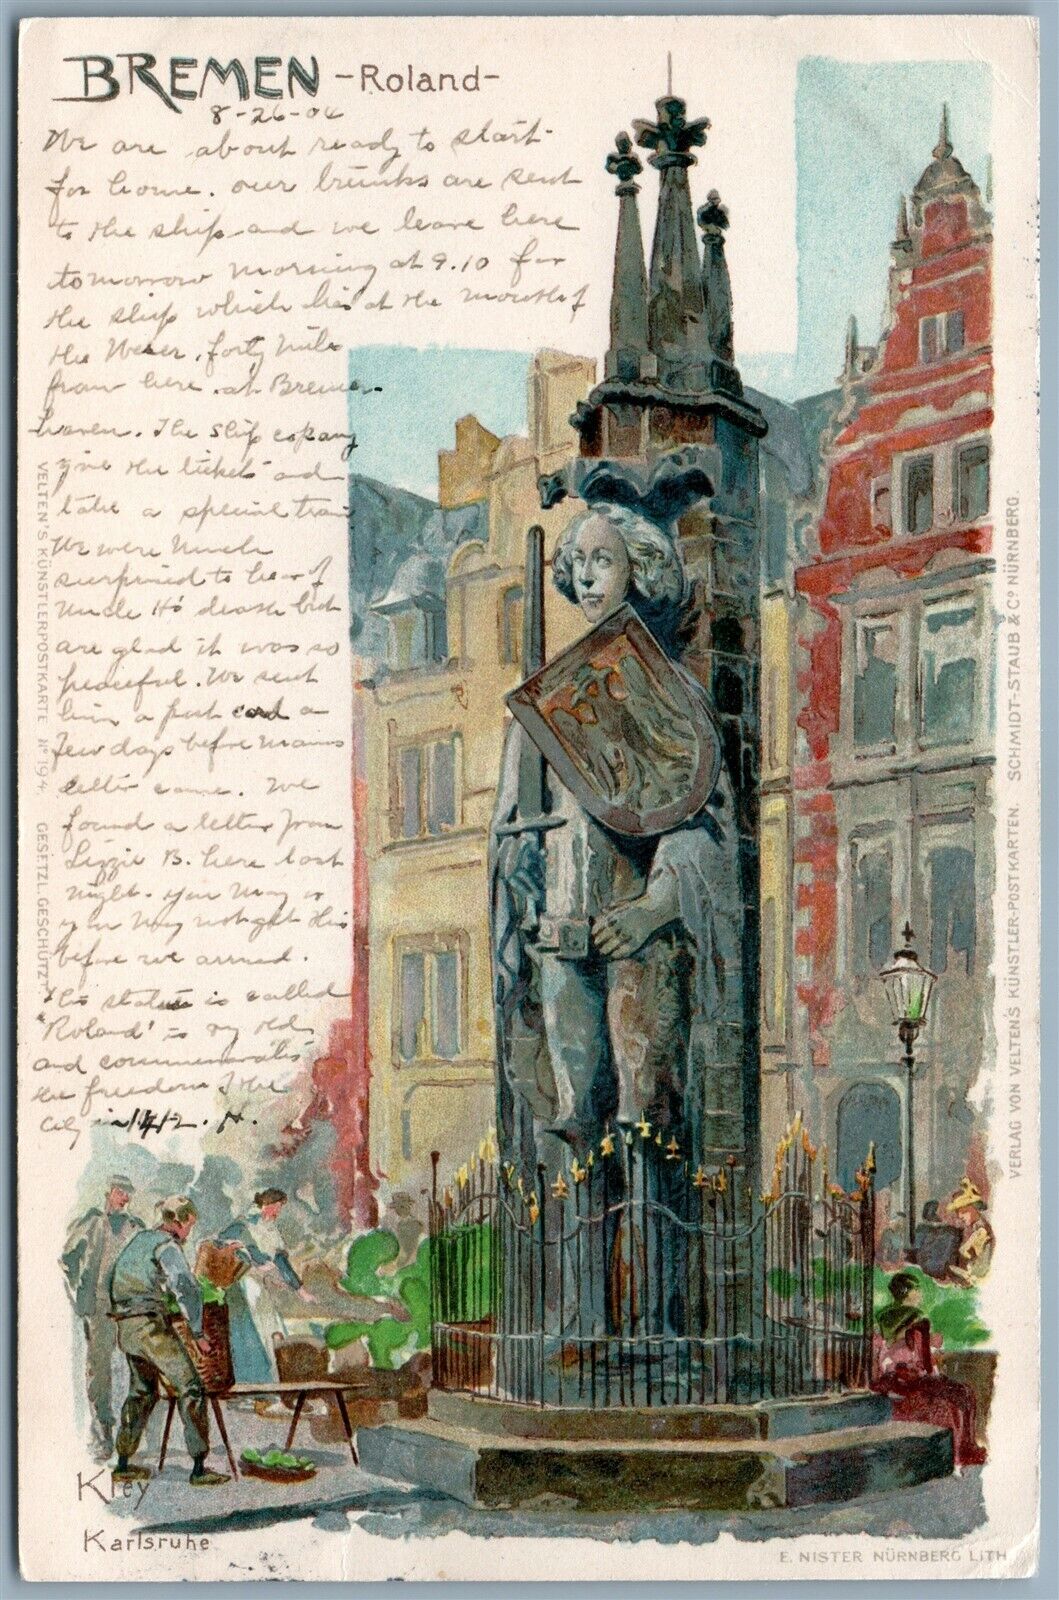 BREMEN -Roland-
8-26-04
We are about ready to start
for home. our trunks are sent
to the ship and we leave here
tomorrow morning at 9.10 for
the ship which lies at the mouth of
the Weser, forty miles
from here, at Bremer-
haven. The ship copany
give the tickets and
take a special train
We were much
surprised to hear of
Uncle H's death but
are glad it was so
peaceful. We sent
him a post card a
few days before Mams
letter came. We
found a letter from
Lizzie B. here last
night. you may or
you may not get this
before we arrived.
The statue is called
"Roland" is very old
and commemorates
the freedom of the
City in 1412. N.
VELTEN'S KÜNSTLERPOSTKARTE No 194. GESETZL. GESCHÜTZT.
VERLAG VON VELTEN'S KÜNSTLER-POSTKARTEN. SCHMIDT-STAUB & Co NÜRNBERG.
Kley
Karlsruhe
E. NISTER NÜRNBERG LITH